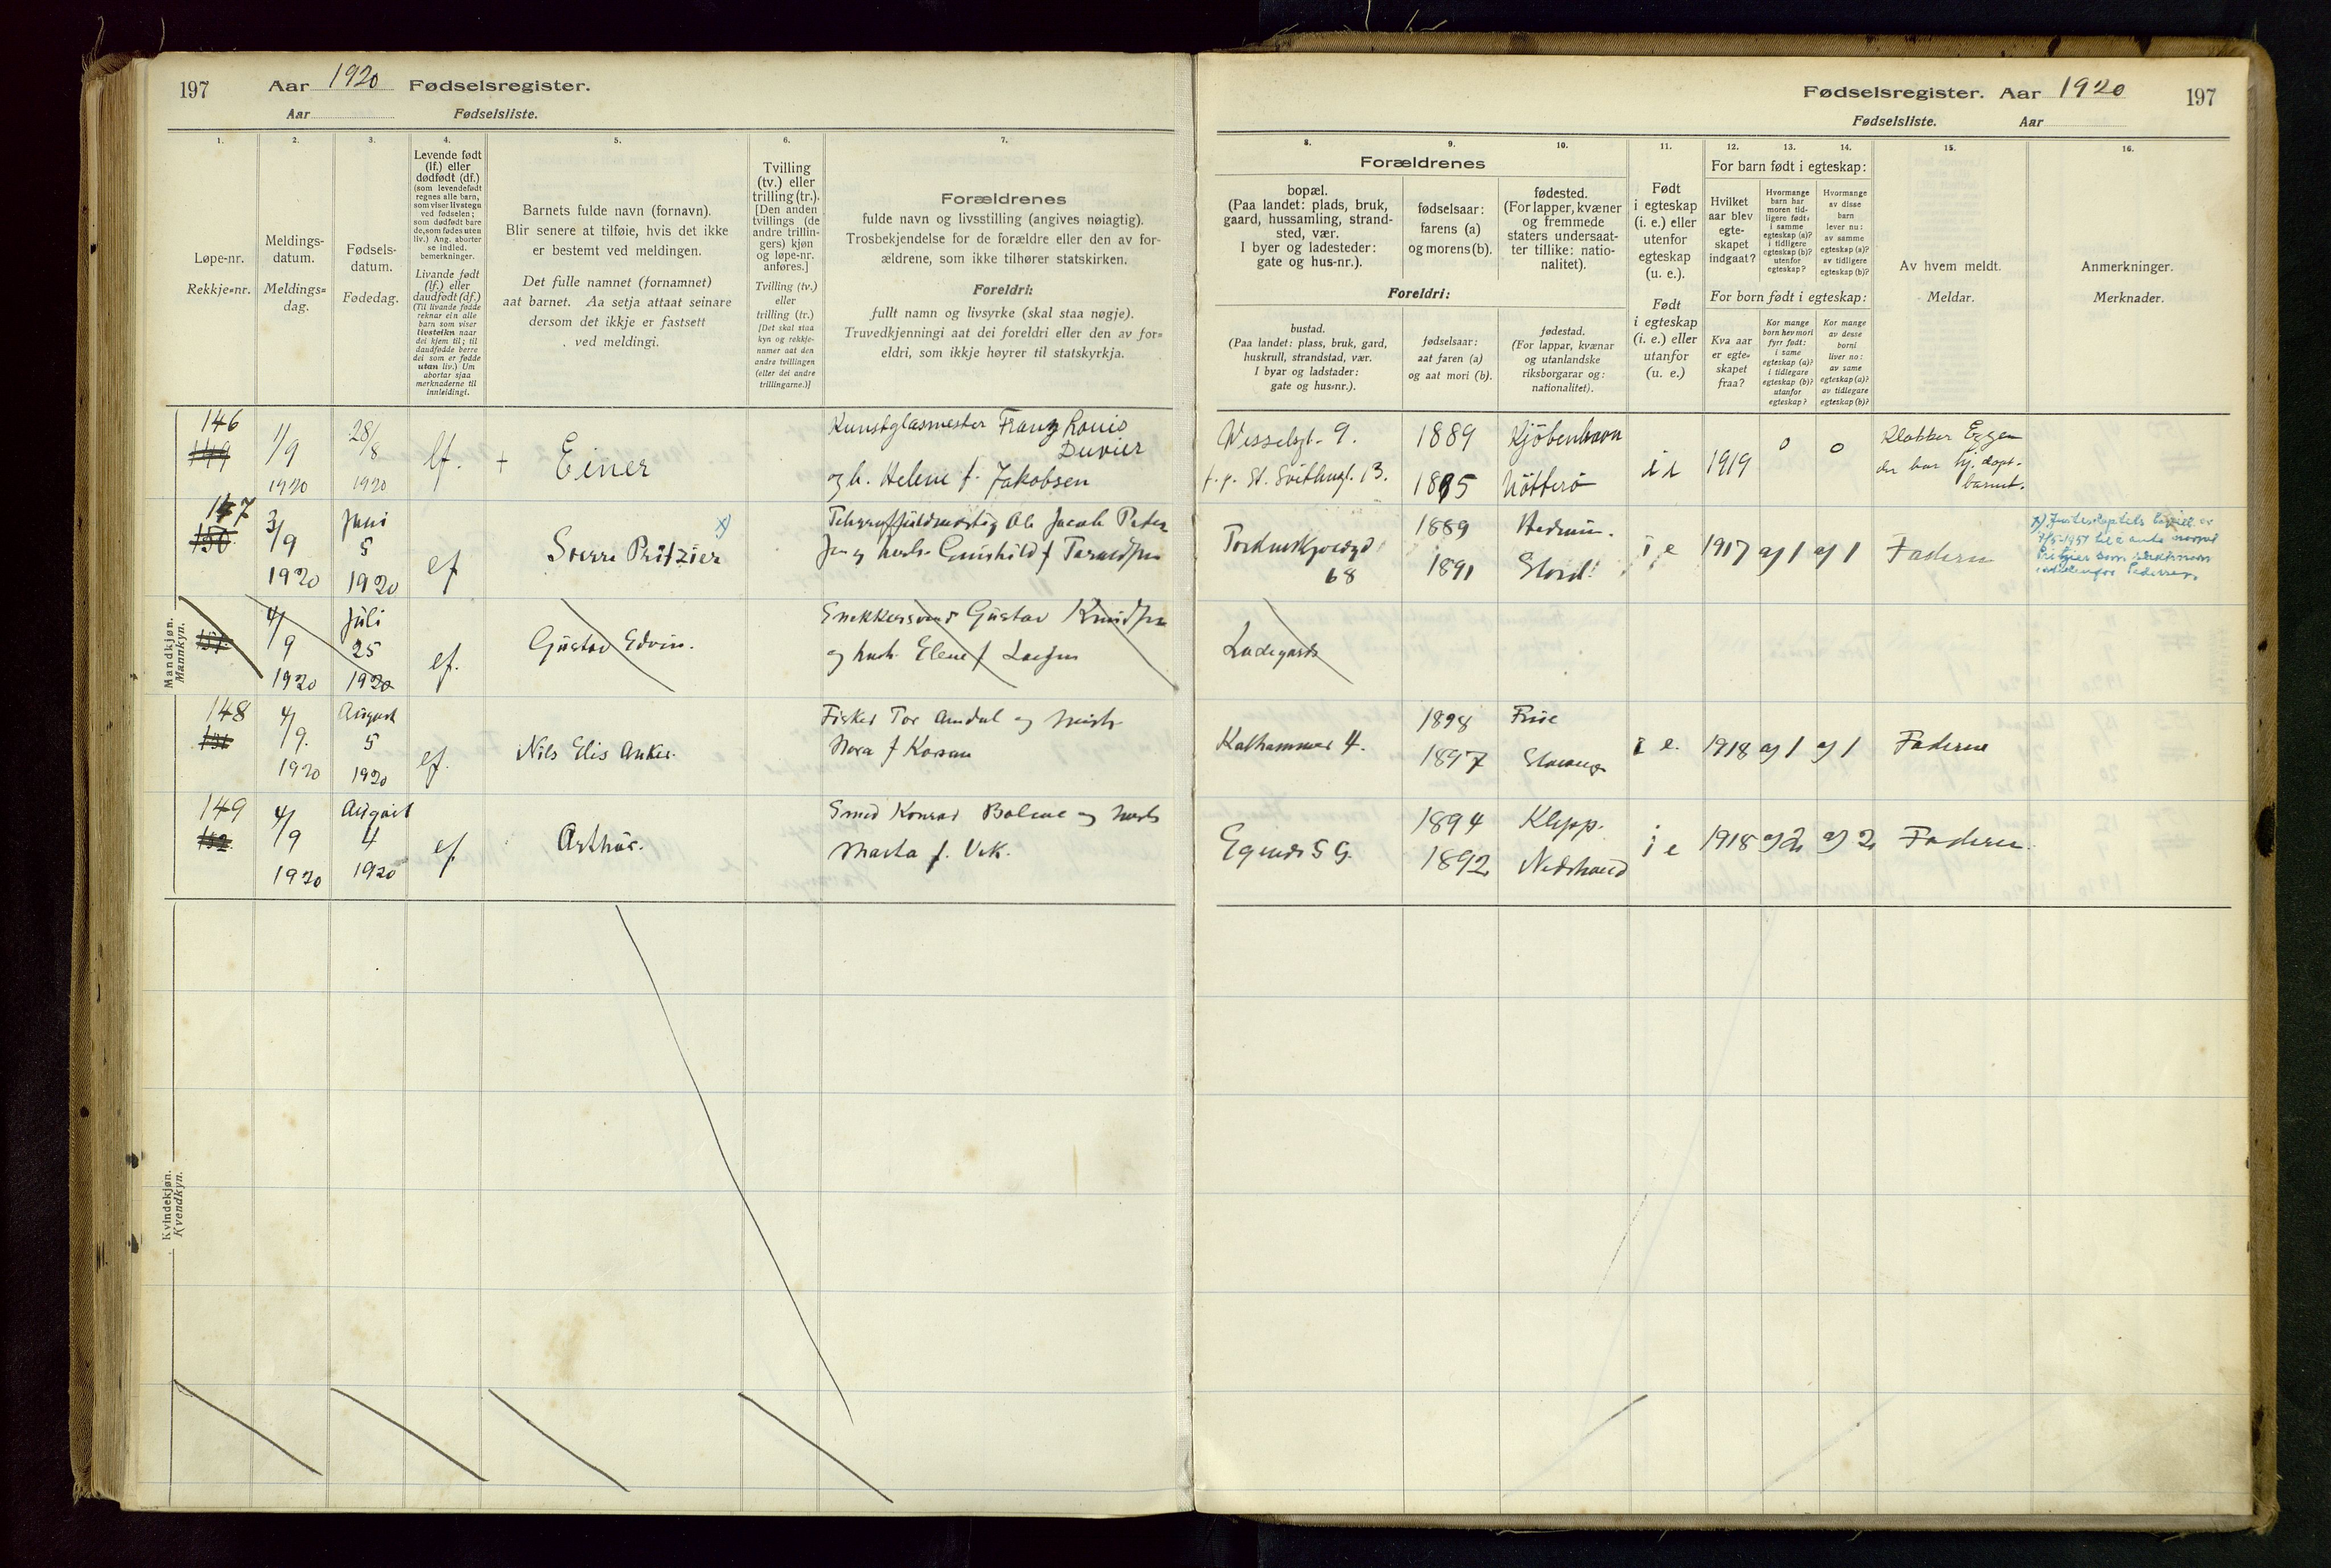 197 Aar 1920 Fødselsregister.
Aar Fødselsliste.
1. 2. 3. 4. 5. 6. 7.
Løpe-nr.
Rekkje-nr.
Meldings-
datum.
Meldings-
dag.
Fødsels-
datum.
Fødedag.
Levende født
(lf.) eller
dødfødt (df.)
(som levendefødt
regnes alle barn,
som viser livstegn
ved fødselen;
som dødfødt bare
de, som fødes uten
liv.) Ang. aborter
se indled.
bemerkninger.
Livande født
(lf.) eller
daudfødt (df.)
(Til livande fødde
reknar ein alle
barn som viser
livsteikn naar
dei kjem til; til
daudfødde berre
dei som er fødde
utan liv.) Um
abortar sjaa
merknaderne til
innleidingi.
Barnets fulde navn (fornavn).
Blir senere at tilføie, hvis det ikke
er bestemt ved meldingen.
Det fulle namnet (fornamnet)
aat barnet. Aa setja attaat seinare
dersom det ikkje er fastsett
ved meldingi.
Tvilling
(tv.) eller
trilling (tr.).
[Den anden
tvillings (de
andre trillin-
gers) kjøn
og løpe-nr.
anføres.]
Tvilling (tv.)
eller
trilling (tr.)
[Det skal staa
kyn og rekkje-
numer aat den
andre tvillingen
(eller dei andre
trillingarne.)]
Forældrenes
fulde navn og livsstilling (angives nøiagtig).
Trosbekjendelse for de forældre eller den av for-
ældrene, som ikke tilhører statskirken.
Foreldri:
fullt namn og livsyrke (skal staa nøgje).
Truvedkjenningi aat dei foreldri eller den av for-
eldri, som ikkje høyrer til statskyrkja.
Mandkjøn.
Mannkyn.
146
149
1/9
1920
28/8
1920
lf.
+ Einer
Kunstglasmester Franz Louis
Duvier
og h. Helene f. Jakobsen
147
150
3/9
1920
Juni
5
1920
lf
Sverre Pritzier x)
Ole Jacob Peder
sen og hust. Gunhild f
151
4/9
1920
Juli
25
1920
lf.
Gustav Edvin.
Snekkersvend Gustav Knudsen
og hust. Elene f Larsen
148
151
4/9.
1920
August
5
1920
lf.
Nils Elis Anker.
Fisker Tor Amdal og hust.
Nora f
149
152.
4/9
1920
August
4
1920
lf.
Arthur.
Smed Konrad og hust
Marta f.
Kvindekjøn.
Kvendkyn.
Fødselsregister. Aar 1920 197
Fødselsliste. Aar
8. 9. 10. 11. 12. 13. 14. 15. 16.
Forældrenes
bopæl.
(Paa landet: plads, bruk,
gaard, hussamling, strand-
sted, vær.
I byer og ladesteder:
gate og hus-nr.).
fødselsaar:
farens (a)
og morens (b).
fødested.
(For lapper, kvæner
og fremmede
staters undersaat-
ter tillike: natio-
nalitet).
Foreldri:
bustad.
(Paa landet: plass, bruk, gard,
huskrull, strandstad, vær.
I byar og ladstader:
gate og hus-nr.).
fødselsaar:
aat faren (a)
og aat mori (b).
fødestad.
(For lappar, kvænar
og utanlandske
riksborgarar og:
nationalitet).
Født
i egteskap
(i. e.) eller
utenfor
egteskap
(u. e.).
Født
i egteskap
(i. e.) eller
utanfor
(u. e.)
For barn født i egteskap:
Hvilket
aar blev
egte-
skapet
indgaat?
Hvormange
barn har
moren tid-
ligere født:
i samme
egteskap (a)?
i tidligere
egteskap (b)?
utenfor
egteskap?
Hvormange
av disse
barn
lever nu:
av samme
egteskap (a)?
av tidligere
egteskap (b)?
For born født i egteskap:
Kva aar
er egte-
skapet
fraa?
Kor mange
born hev mori
fyrr født:
i same
egteskap (a)?
i tidlegare
egteskap (b)?
utanfor
egteskap?
Kor mange
av desse
borni
liver no:
av same
egteskap (a)?
av tidlegare
egteskap (b)?
Av hvem meldt.
Meldar.
Anmerkninger.
Merknader.
Wesselsgt. 9.
f. p. St. Svithungt. 13.
1889
1895
Kjöbenhavn
Nötterö
i e
1919
0
0
Klokker Eggen
der har hj. döpt.
barnet.
68
1889
1891
Hedrum.
Stord.
i e
1917
a) 1
a) 1
Faderen
Ladegaards
Kalhammer 4.
1898
1897
Stavanger
i e.
1918
a) 1
a) 1
Faderen
Egenes 59.
1894
1892
Klepp.
Nedstrand
i e
1918
a) 2
a) 2
Faderen.